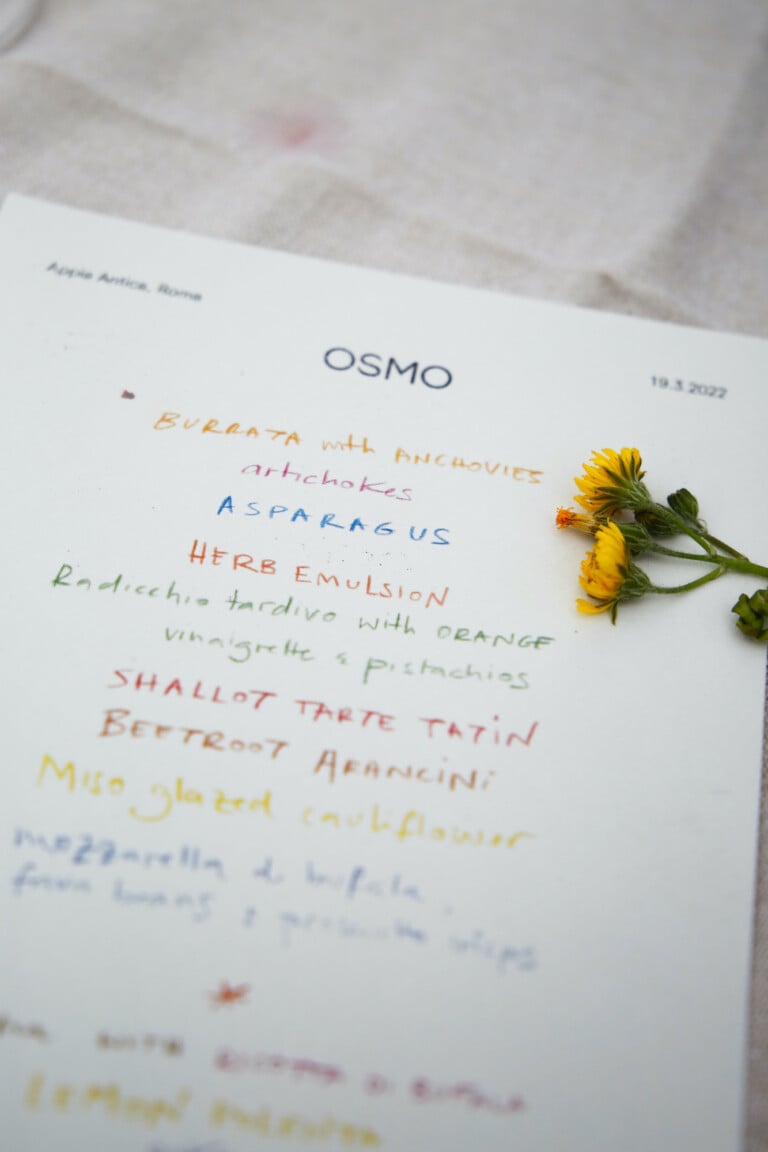 Appia Antica, Rome
OSMO
19.3.2022
BURRATA with ANCHOVIES
artichokes
ASPARAGUS
HERB EMULSION
Radicchio tardivo with ORANGE
vinaigrette & pistachios
SHALLOT TARTE TATIN
BEETROOT ARANCINI
Miso glazed cauliflower
mozzarella di bufala
fava beans & prosciutto crisps
WITH RICOTTA DI BUFALA
LEMON POLENTA